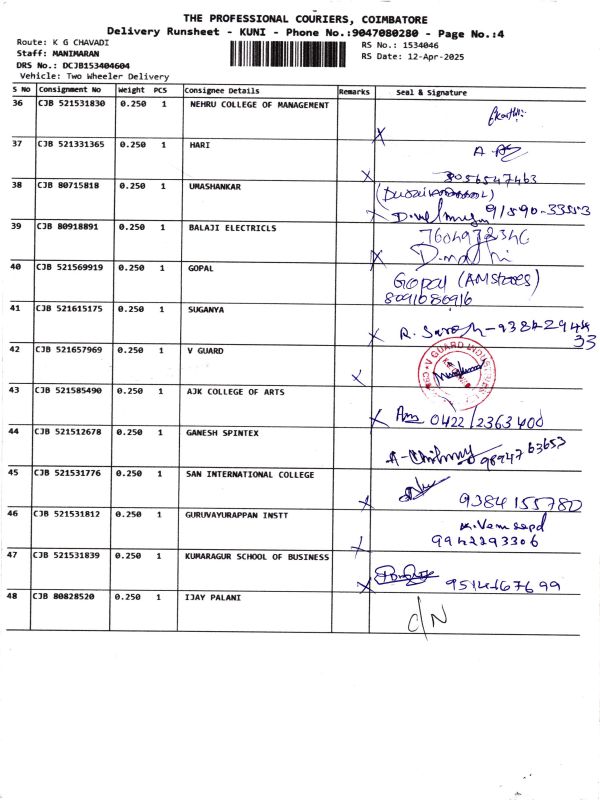 THE PROFESSIONAL COURIERS, COIMBATORE
Delivery Runsheet - KUNI - Phone No.:9047080280 - Page No.:4
Route: K G CHAVADI
Staff: MANIMARAN
DRS No.: DCJB153404604
Vehicle: Two Wheeler Delivery
RS No.: 1534046
RS Date: 12-Apr-2025
S No Consignment No Weight PCS Consignee Details Remarks Seal & Signature
36 CJB 521531830 0.250 1 NEHRU COLLEGE OF MANAGEMENT
X
37 CJB 521331365 0.250 1 HARI
X 8056547463
38 CJB 80715818 0.250 1 UMASHANKAR
X 91590-33553
39 CJB 80918891 0.250 1 BALAJI ELECTRICLS
X D.mathi
40 CJB 521569919 0.250 1 GOPAL Gopal (AM stores)
8091080916
41 CJB 521615175 0.250 1 SUGANYA
X
42 CJB 521657969 0.250 1 V GUARD V GUARD INDUSTRIES
X
43 CJB 521585490 0.250 1 AJK COLLEGE OF ARTS
X 0422 2363400
44 CJB 521512678 0.250 1 GANESH SPINTEX
9894763653
45 CJB 521531776 0.250 1 SAN INTERNATIONAL COLLEGE
X 9384155780
46 CJB 521531812 0.250 1 GURUVAYURAPPAN INSTT
X 9942293306
47 CJB 521531839 0.250 1 KUMARAGUR SCHOOL OF BUSINESS
X 9514167699
48 CJB 80828520 0.250 1 IJAY PALANI
C/N